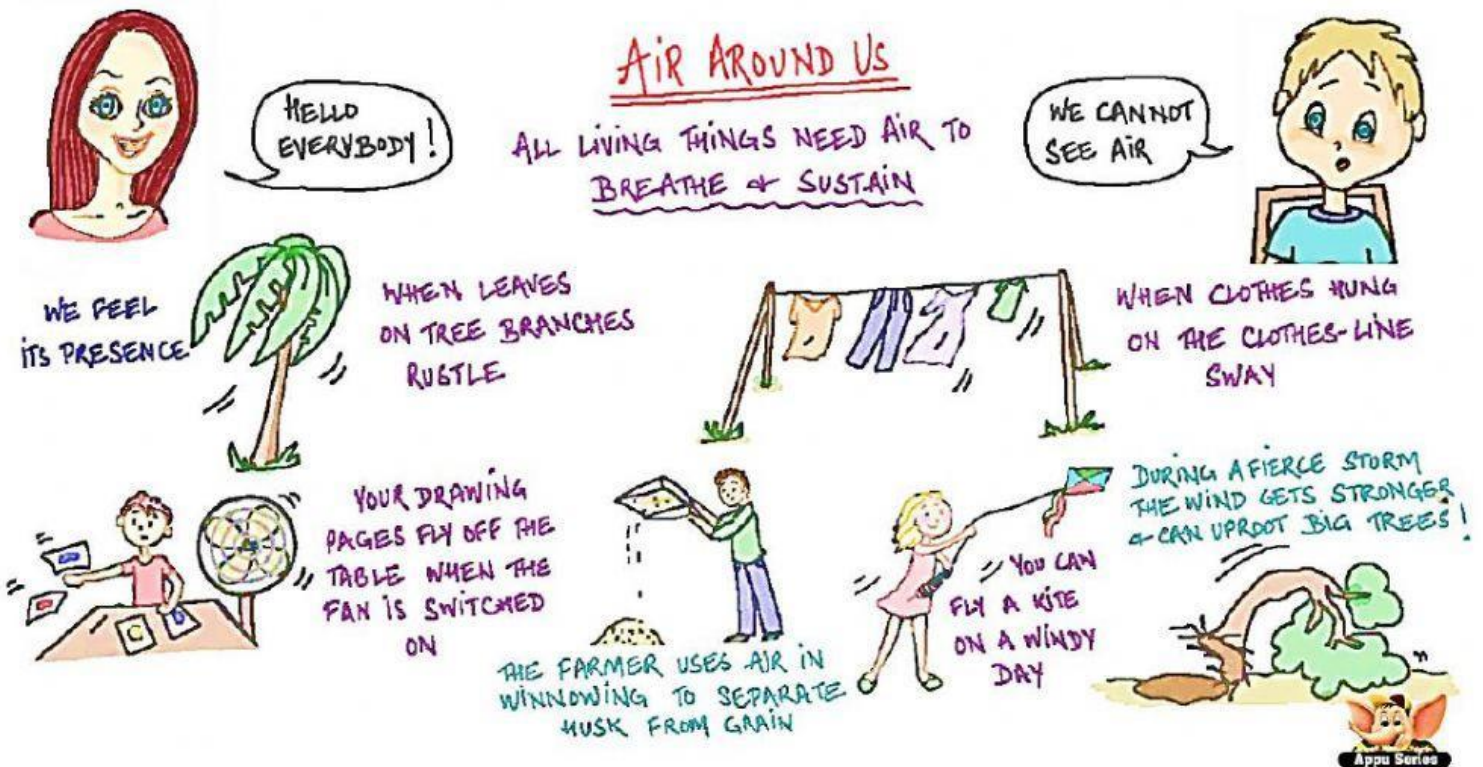 AIR AROUND US
ALL LIVING THINGS NEED AIR TO
BREATHE & SUSTAIN
HELLO
EVERYBODY!
WE CANNOT
SEE AIR
WE FEEL
ITS PRESENCE
WHEN LEAVES
ON TREE BRANCHES
RUSTLE
WHEN CLOTHES HUNG
ON THE CLOTHES-LINE
SWAY
YOUR DRAWING
PAGES FLY OFF THE
TABLE WHEN THE
FAN IS SWITCHED
ON
THE FARMER USES AIR IN
WINNOWING TO SEPARATE
HUSK FROM GRAIN
YOU CAN
FLY A KITE
ON A WINDY
DAY
DURING A FIERCE STORM
THE WIND GETS STRONGER
& CAN UPROOT BIG TREES!
Appu Series